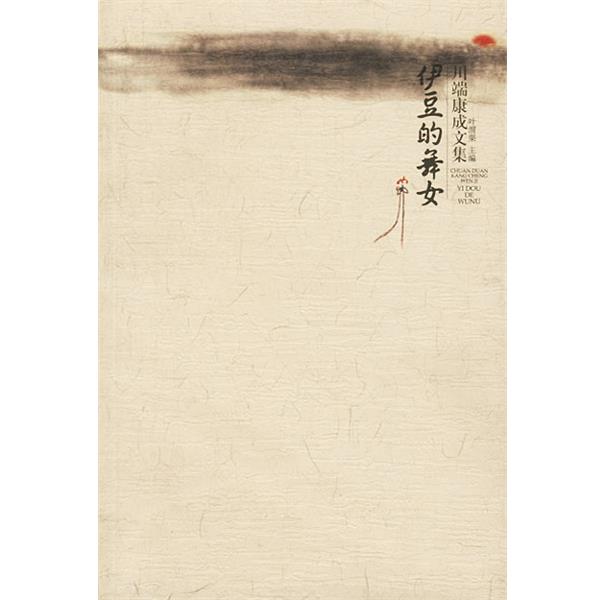 川端康成文集
叶渭渠 主编
CHUAN DUAN
KANG CHENG
WEN JI
YI DOU
DE
WUNÜ
伊豆的舞女